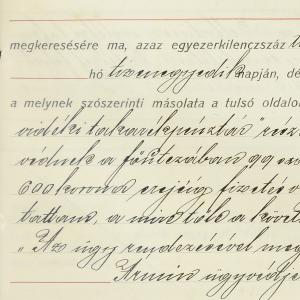 megkeresésére ma, azaz egyezerkilencszáz
hó tizenegyedik napján, dé
a melynek szószerinti másolata a tulsó oldalo
vidéki takarékpénztár" rész
védnek a főutczában 99
600 korona erejéig fizetés
tattam, a mire tőle a követ
„Az ügy rendezésével meg
Ármin ügyvédje